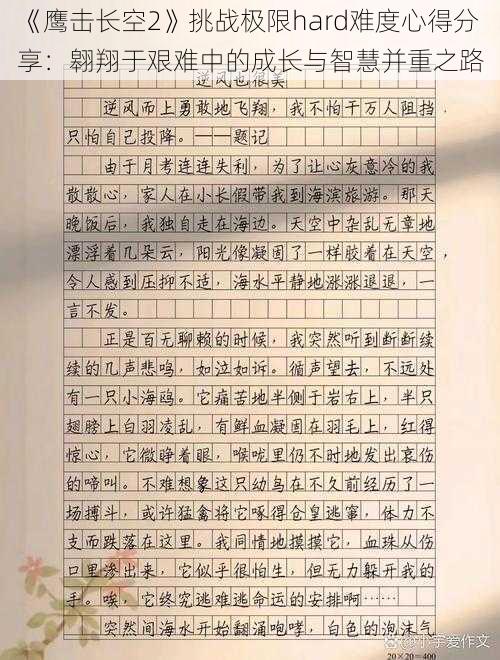 《鹰击长空2》挑战极限hard难度心得分
享：翱翔于艰难中的成长与智慧并重之路
逆风也很美
逆风而上勇敢地飞翔，我不怕千万人阻挡，
只怕自己投降。——题记
由于月考连连失利，为了让心灰意冷的我
散散心，家人在小长假带我到海滨旅游。那天
晚饭后，我独自走在海边。天空中杂乱无章地
漂浮着几朵云，阳光像凝固了一样胶着在天空，
令人感到压抑不适，海水平静地涨涨退退，一
言不发。
正是百无聊赖的时候，我突然听到断断续
续的几声悲鸣，如泣如诉。循声望去，不远处
有一只小海鸥。它痛苦地半侧于岩右上，半只
翅膀上白羽凌乱，有鲜血凝固在羽毛上，红得
惊心，它微睁着眼，喉咙里仍不时地发出哀伤
的啼叫。不难想象这只幼鸟在不久前经历了一
场搏斗，或许猛禽将它啄得仓皇逃窜，体力不
支而跌落在这里。我同情地摸摸它，血珠从伤
口里渗出来，它似乎很怕生，但无力躲开我的
手。唉，它终究逃难逃命运的安排啊……
突然间海水开始翻涌咆哮，白色的泡沫气
小宇爱作文
20×20=400